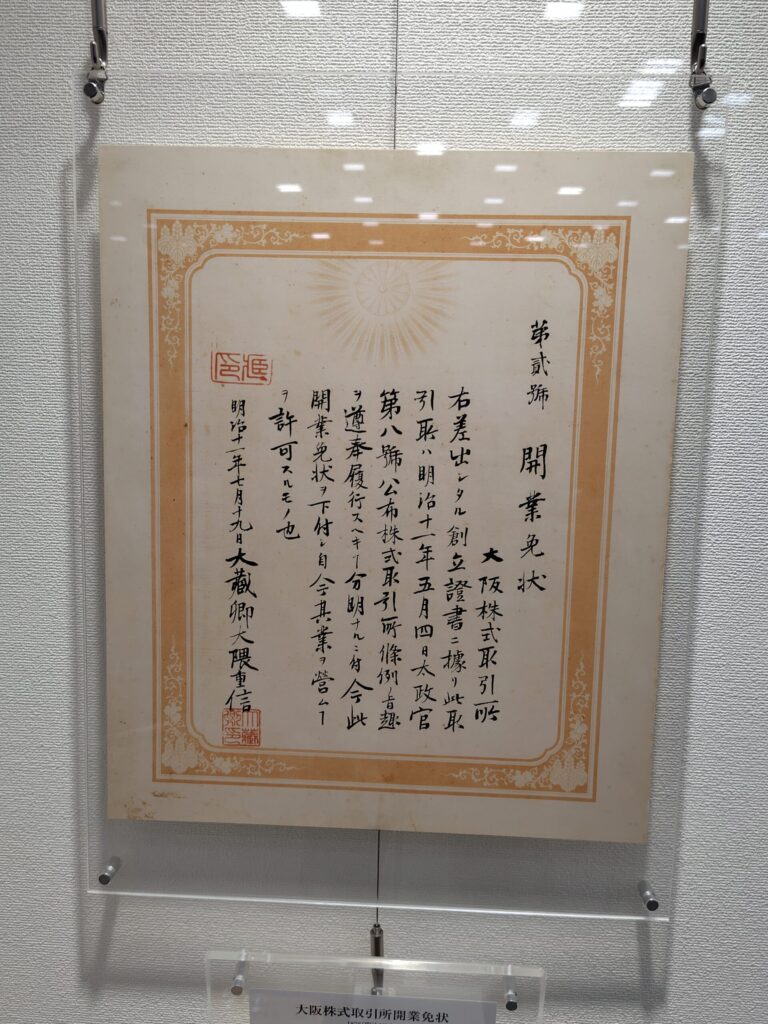 第貳號
開業免状
大阪株式取引所
右差出シタル創立證書ニ據リ此取
引所ハ明治十一年五月四日太政官
第八號公布株式取引所條例ノ旨趣
ヲ遵奉履行スヘキヿ分明ナルニ付今此
開業免状ヲ下付シ自今其業ヲ營ムヿ
ヲ許可スルモノ也
明治十一年七月十九日大藏卿大隈重信
大阪株式取引所開業免状